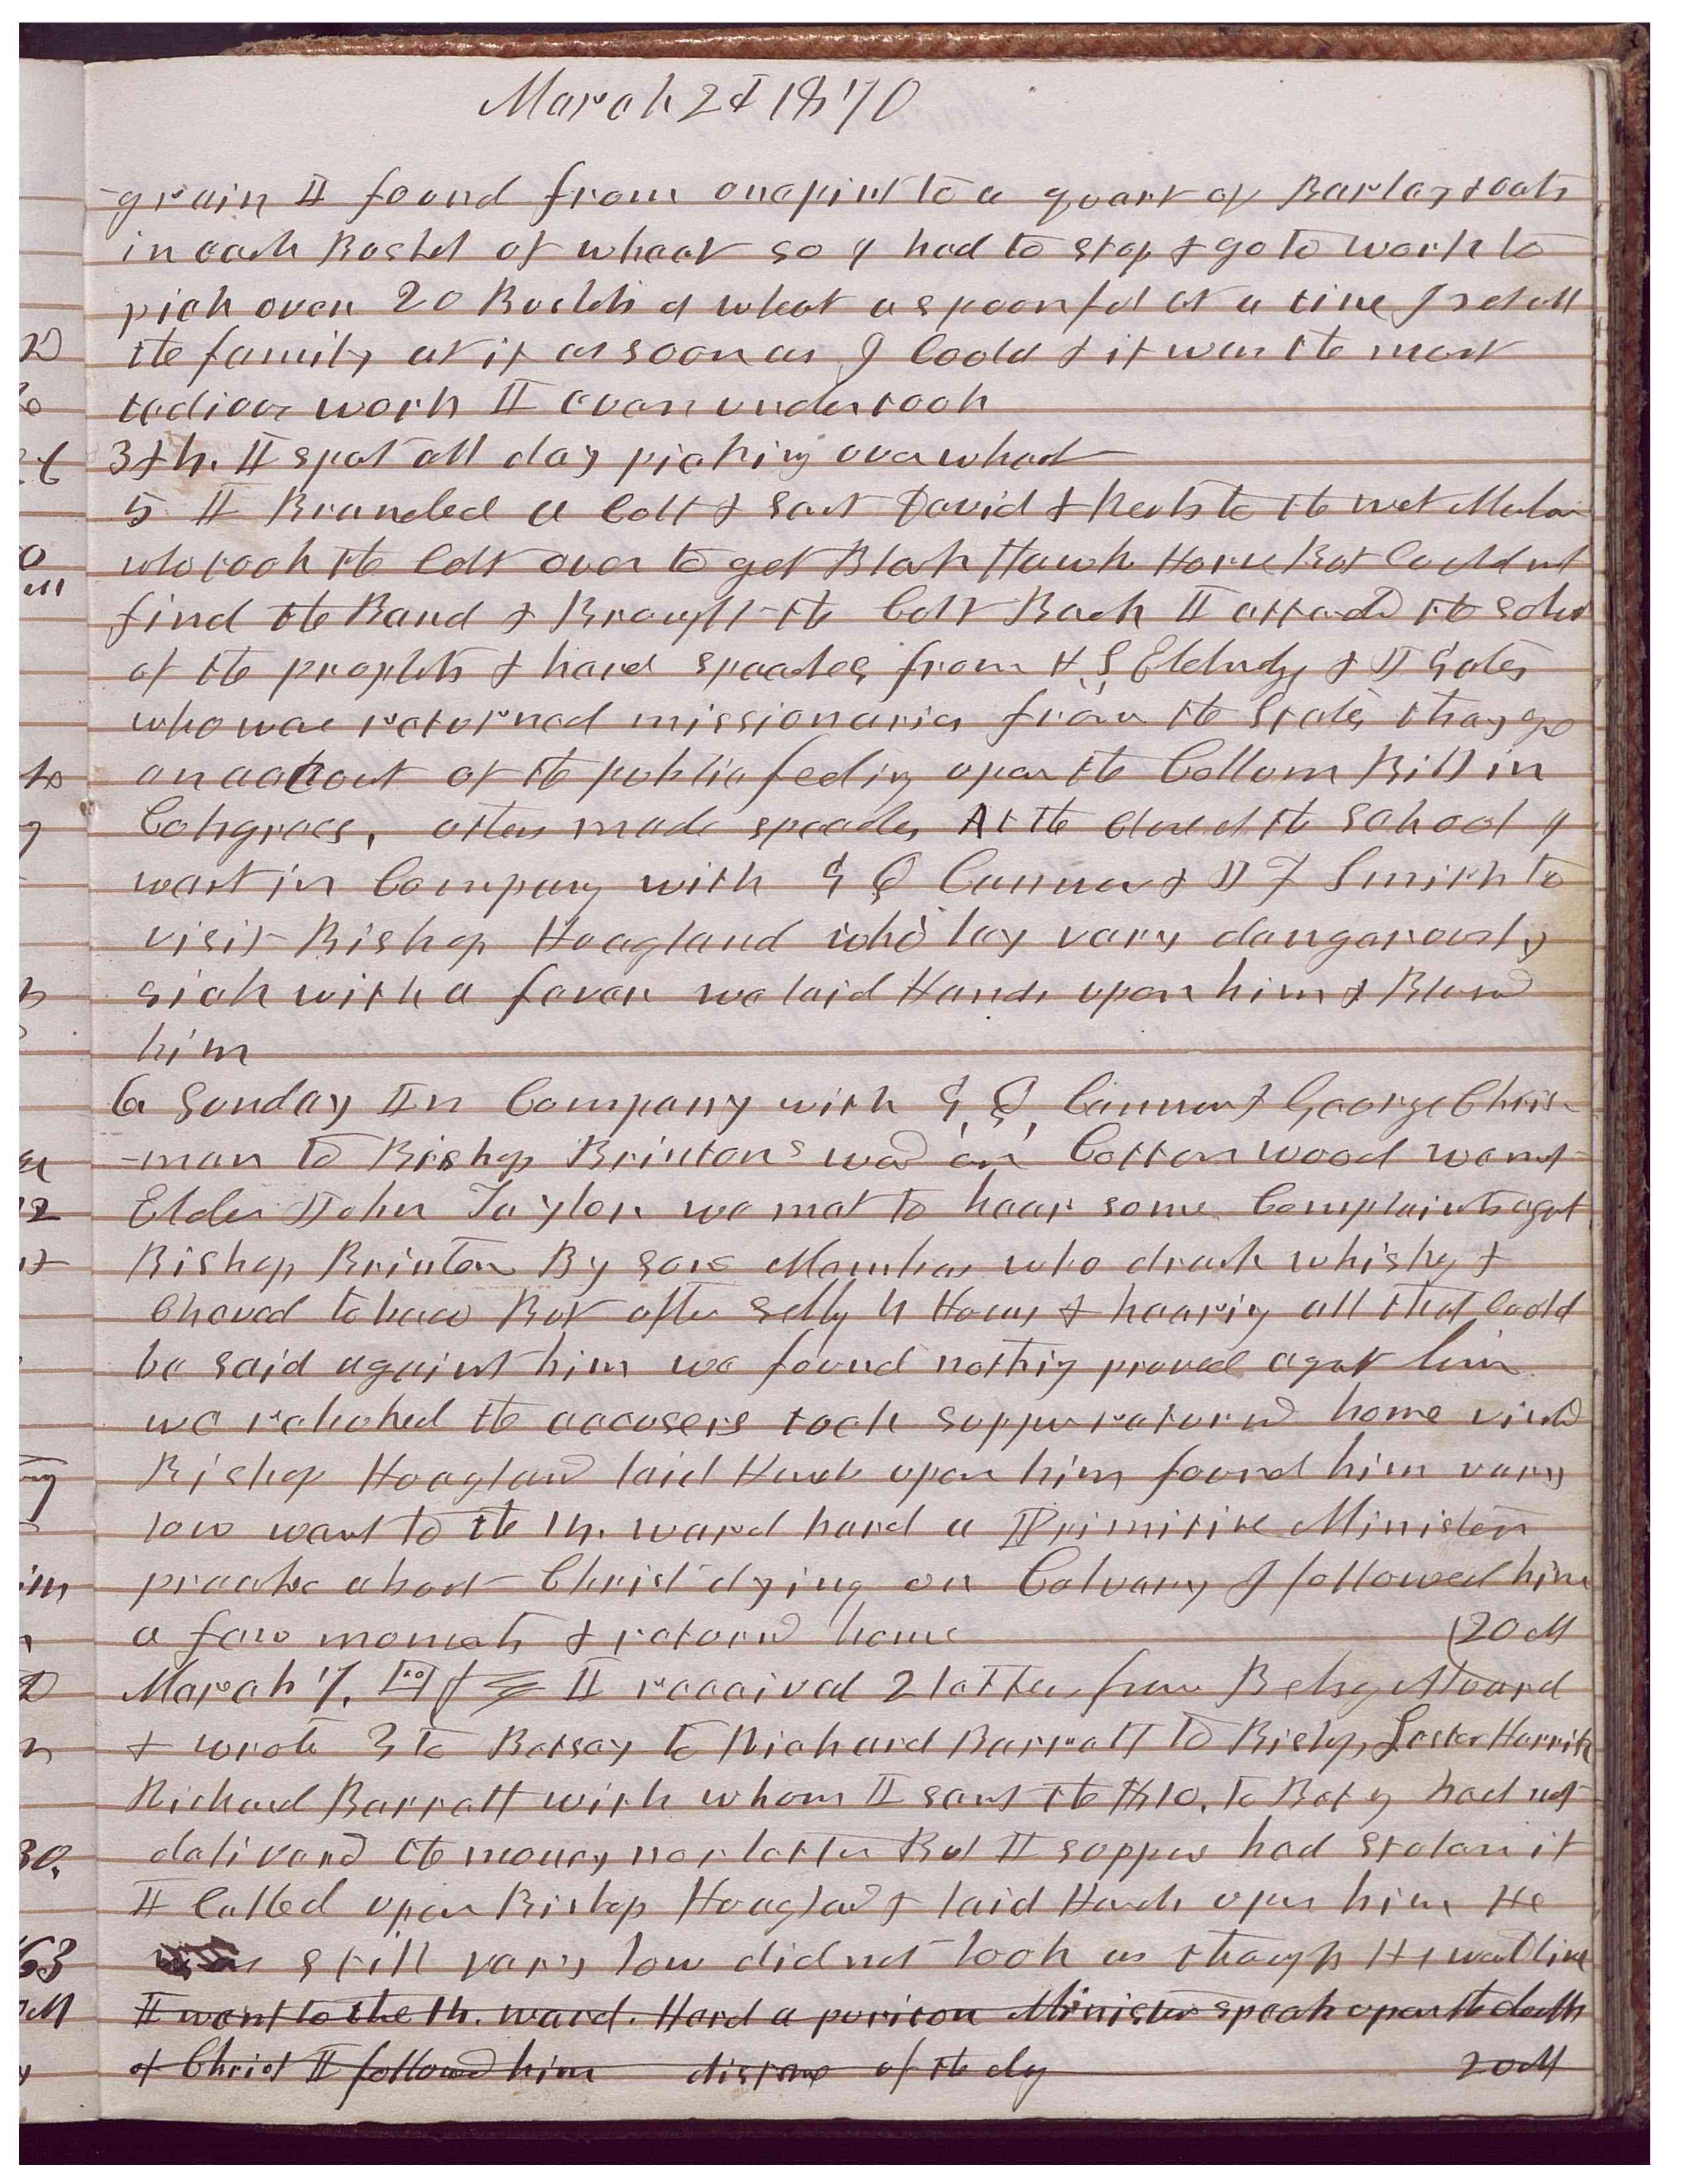 March 2d 1870
grain I found from one pint to a quart of Barley & oats
in each Bushel of wheat so I had to stop & go to work to
pick over 20 Bushels of wheat a spoonful at a time I set all
the family at it as soon as I Could & it was the most
tedious work I ever undertook
3 4h. I spet all day picking over wheat
5 I Branded a Colt & sent David & to the wet
who took the Colt over to get Black Hawk Horse But Could not
find the Band & Brought the Colt Back I attend the school
of the prophets & heard speeches from H S Eldridge & J Gates
who were returned missionaries from the States they
an account of the public feeling upon the Collom Bill in
Congress, others made speeches At the close of the School I
went in Company with G Q Cannon & J F Smith to
visit Bishop Hoagland who lay very dangerously
sick with a fever we laid Hands upon him & Blessed
him
6 Sunday In Company with G, Q, Cannon & George Chris-
-man to Bishop Brintons ward on Cotton wood went
Elder John Taylor we met to hear some Complaints agst
Bishop Brinton By some Members who drank whisky &
Chewed tobaco But after setting 4 Hours & hearing all that Could
be said against him we found nothig proved agst him
we rebuked the accusers took supper returnd home visitd
Bishop Hoagland laid Hands upon him found him very
low went to the 14. ward heard a Primitive Minister
preache about Christ dying on Calvary I followed him
a few moments & returnd home 20 M
March 7. I received 2 letters from Betsy Alvord
& wrote 3 to Betsey to Richard Barratt to Bishop, Lester Herrick
Richard Barratt with whom I sent the $10. to Betsy had not
deliverd the money nor letter But I suppose had stolen it
I Called upon Bishop Hoagland & laid Hands upon him He
was still very low did not look as though He would live
I went to the 14. ward. Herd a puriton Minister speak upon the death
of Christ I followed him distance of the day 20 M